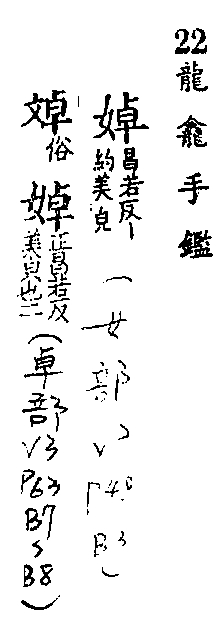 22
龍龕手鑑
婥昌若反丨
約美皃
(女部
V2
P40
B3)
㪕俗
婥正昌若反
美皃也二
(卓部
V3
P63
B7
B8)